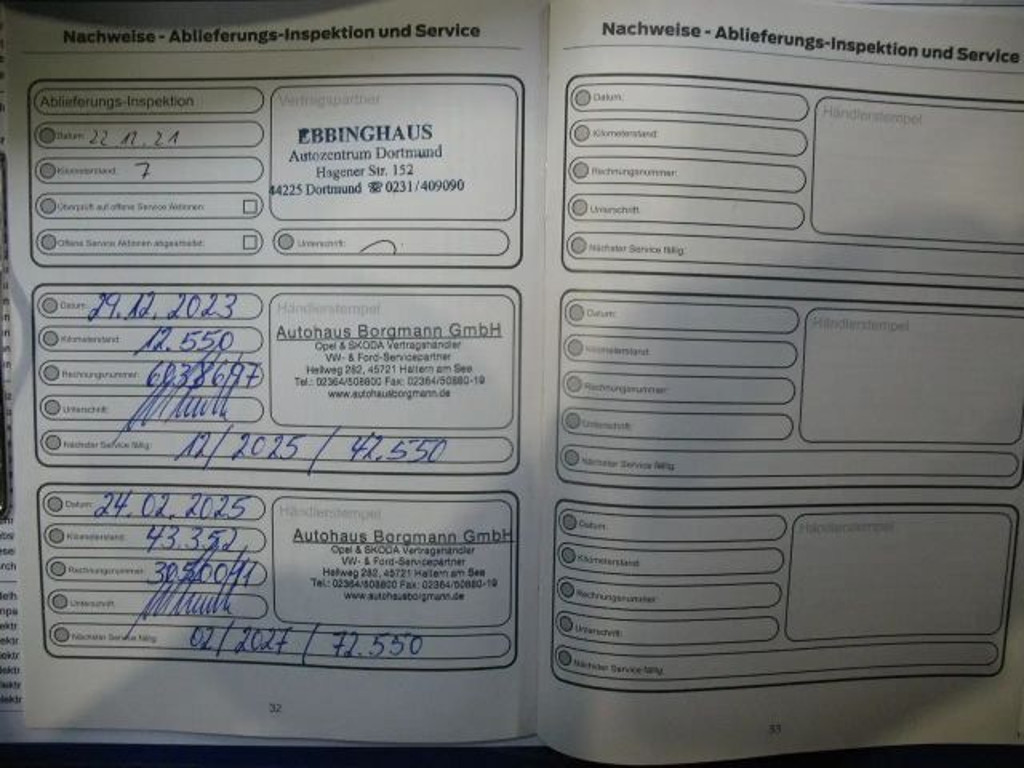 Nachweise - Ablieferungs-Inspektion und Service
Ablieferungs-Inspektion
Vertragspartner
Datum: 22 12. 21
EBBINGHAUS
Autozentrum Dortmund
Hagener Str. 152
44225 Dortmund ☎ 0231/409090
Kilometerstand: 7
Überprüft auf offene Service Aktionen:
Offene Service Aktionen abgearbeitet:
Unterschrift:
Datum: 29.12.2023
Kilometerstand: 12.550
Rechnungsnummer:
Unterschrift:
Nächster Service fällig: 12/2025 / 42.550
Händlerstempel
Autohaus Borgmann GmbH
Opel & SKODA Vertragshändler
VW- & Ford-Servicepartner
Hellweg 282, 45721 Haltern am See
Tel.: 02364/508800 Fax: 02364/50880-19
www.autohausborgmann.de
Datum: 24.02.2025
Kilometerstand: 43.352
Rechnungsnummer:
Unterschrift:
Nächster Service fällig: 02/2027 / 72.550
Händlerstempel
Autohaus Borgmann GmbH
Opel & SKODA Vertragshändler
VW- & Ford-Servicepartner
Hellweg 282, 45721 Haltern am See
Tel.: 02364/508800 Fax: 02364/50880-19
www.autohausborgmann.de
32
Nachweise - Ablieferungs-Inspektion und Service
Datum:
Kilometerstand:
Rechnungsnummer:
Unterschrift:
Nächster Service fällig:
Händlerstempel
Datum:
Kilometerstand:
Rechnungsnummer:
Unterschrift:
Nächster Service fällig:
Händlerstempel
Datum:
Kilometerstand:
Rechnungsnummer:
Unterschrift:
Nächster Service fällig:
Händlerstempel
33